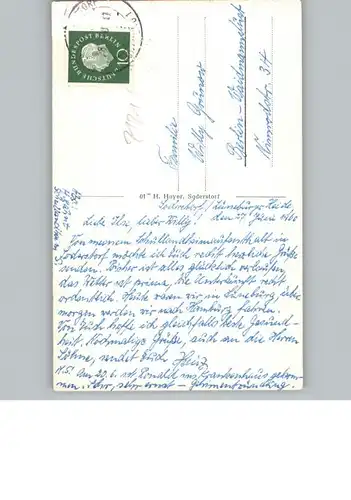 DEUTSCHE BUNDESPOST BERLIN
10
Familie
Willy
Berlin - Waidmannslust
Nimrodstr. 34
01" H. Hoyer, Soderstorf
Soderstorf / Lüneburger Heide
den 27. Juni 1960
Liebe Ilse, lieber Willy!
Von meinem Schullandheimaufenthalt in
Soderstorf möchte ich Euch recht herzliche Grüße
senden. Bisher ist alles glücklich verlaufen,
das Wetter ist prima, die Unterkunft recht
ordentlich. Heute waren wir in Lüneburg,
morgen werden wir nach Hamburg fahren.
Von Euch hoffe ich gleichfalls beste Gesund-
heit. Nochmalige Grüße, auch an die Herren
Söhne, sendet Euch Heinz
N.S. Am 20.6. ist Ronald ins Krankenhaus gekom-
men. Sehr, sehr ernst -